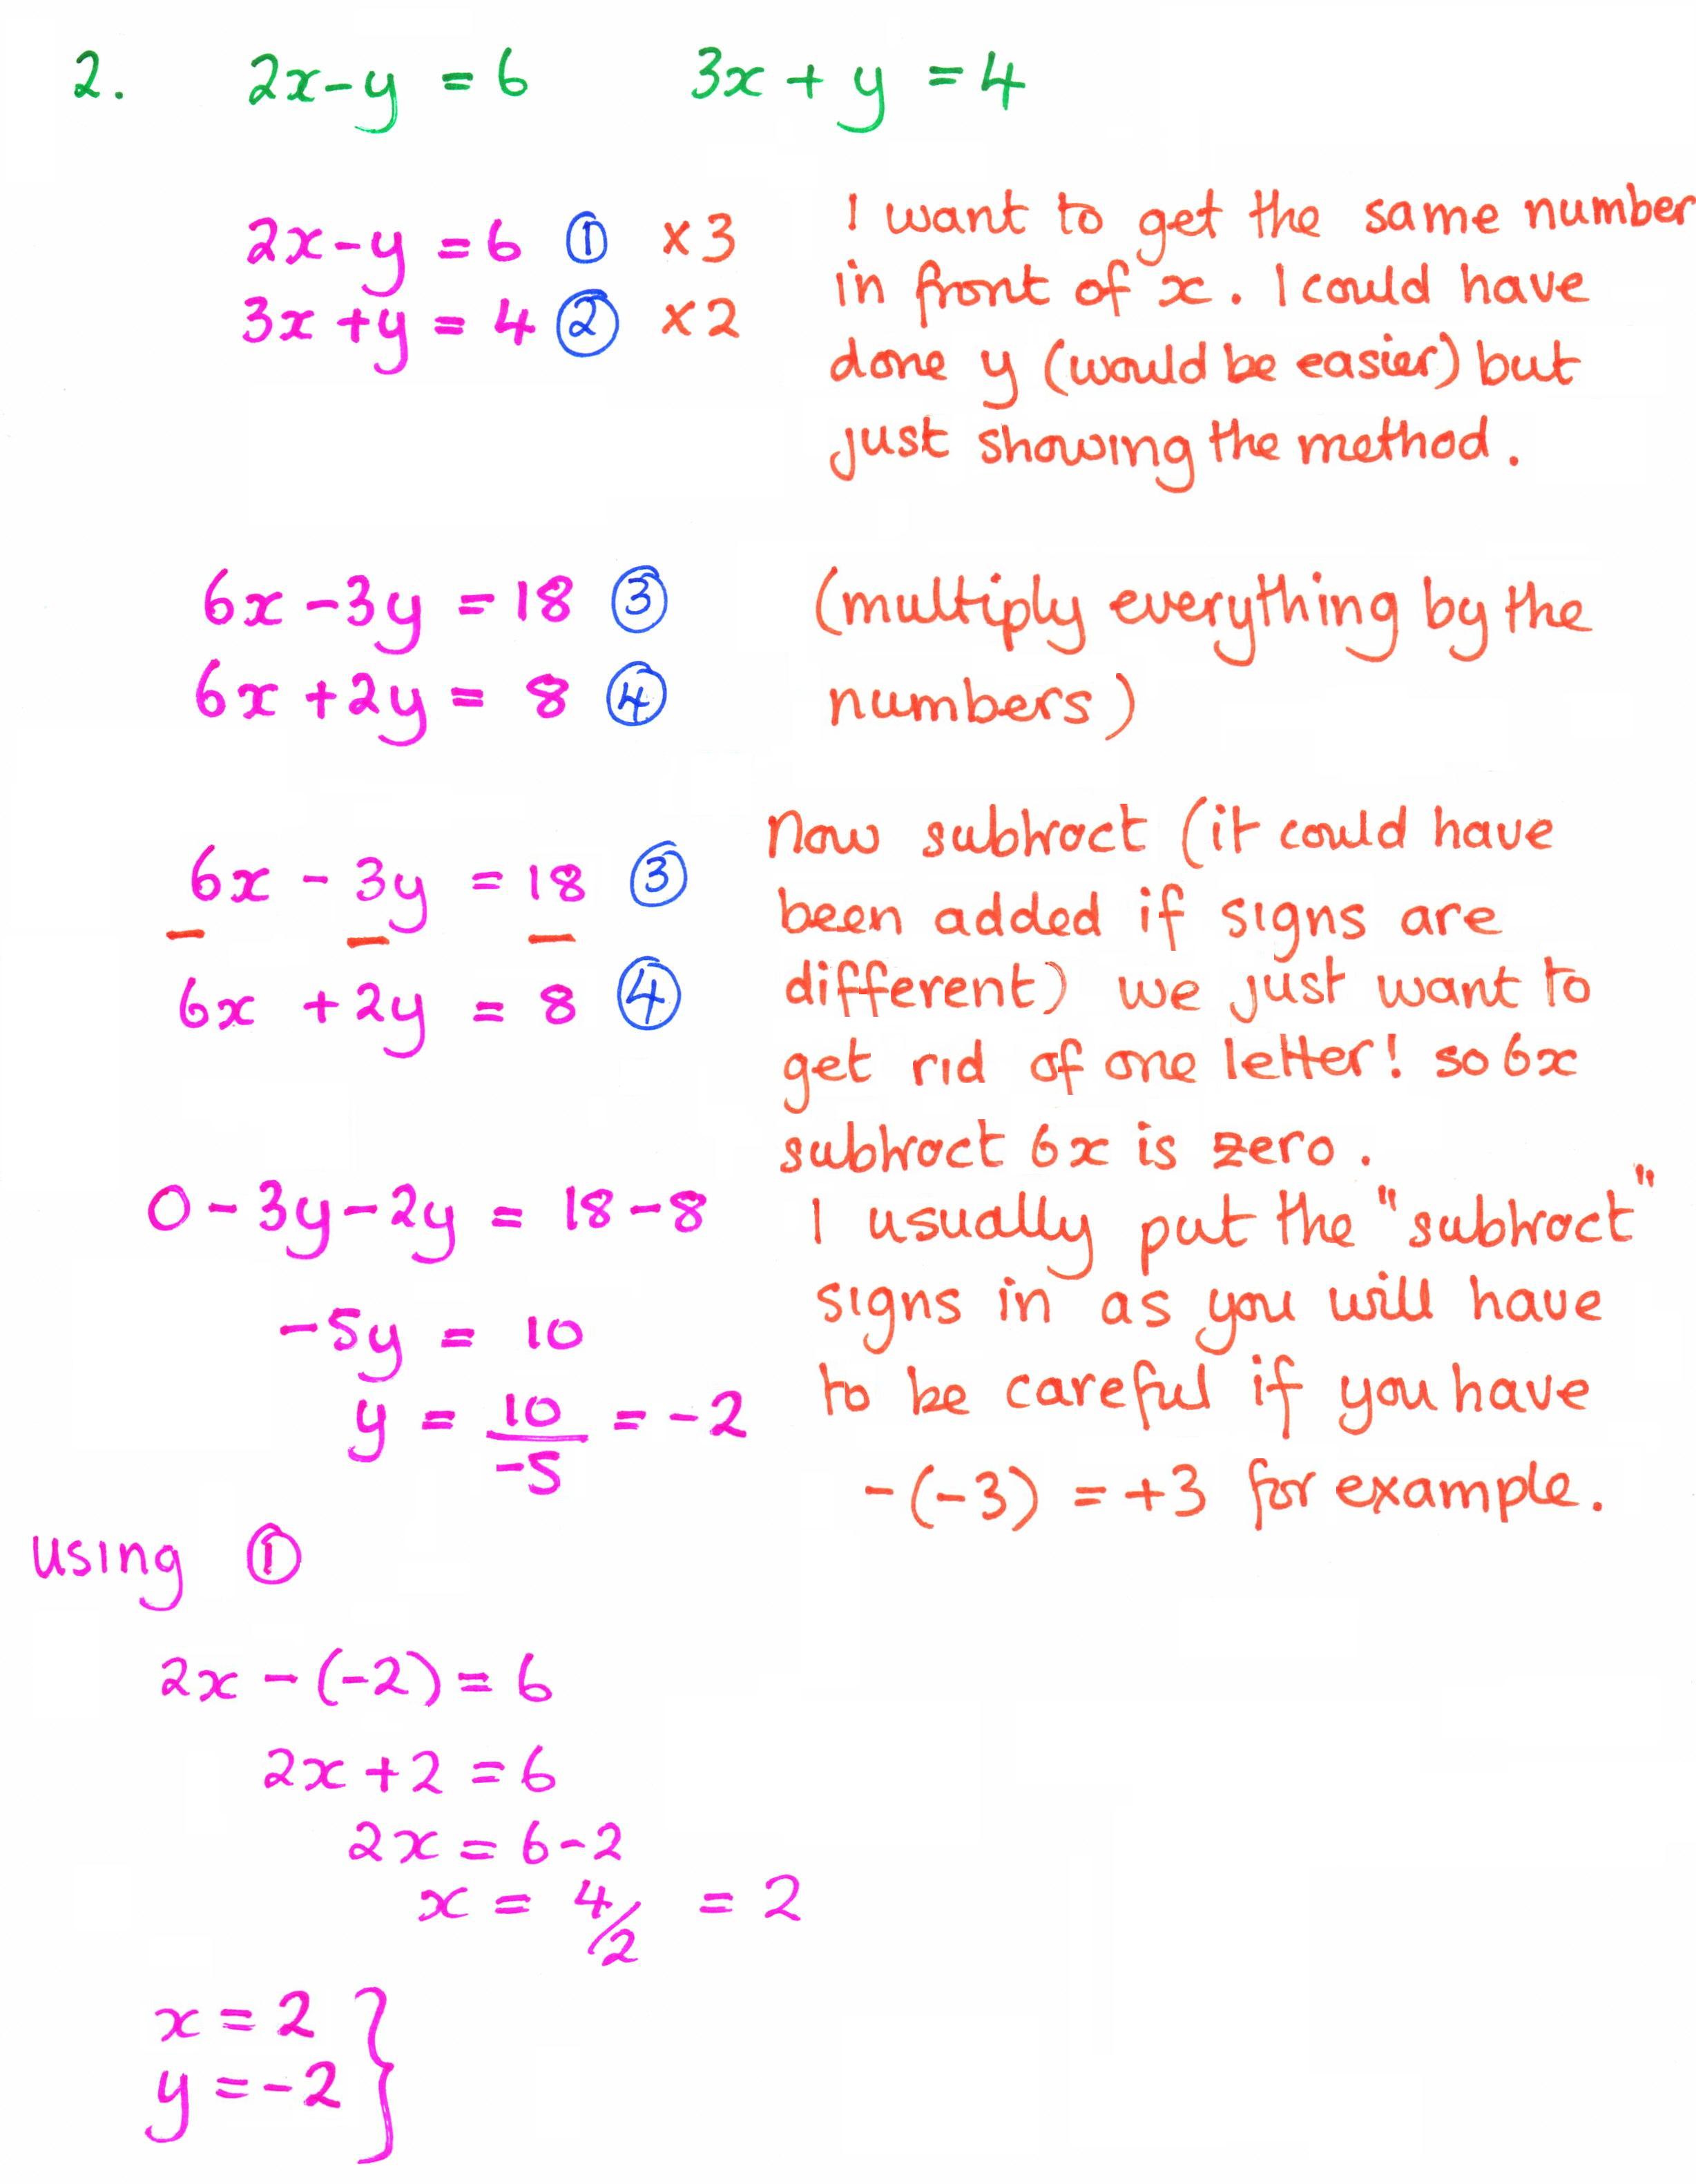 2. 2x-y = 6 3x + y = 4
2x-y = 6 ① ×3
3x +y = 4 ② ×2
I want to get the same number
in front of x. I could have
done y (would be easier) but
just showing the method.
6x -3y = 18 ③
6x +2y = 8 ④
(multiply everything by the
numbers)
6x - 3y = 18 ③
— — —
6x +2y = 8 ④
Now subtract (it could have
been added if signs are
different) we just want to
get rid of one letter! so 6x
subtract 6x is zero.
I usually put the "subtract"
signs in as you will have
to be careful if you have
-(-3) = +3 for example.
0 - 3y - 2y = 18 - 8
-5y = 10
y = 10/-5 = -2
using ①
2x - (-2) = 6
2x + 2 = 6
2x = 6-2
x = 4/2 = 2
x = 2
y = -2 }